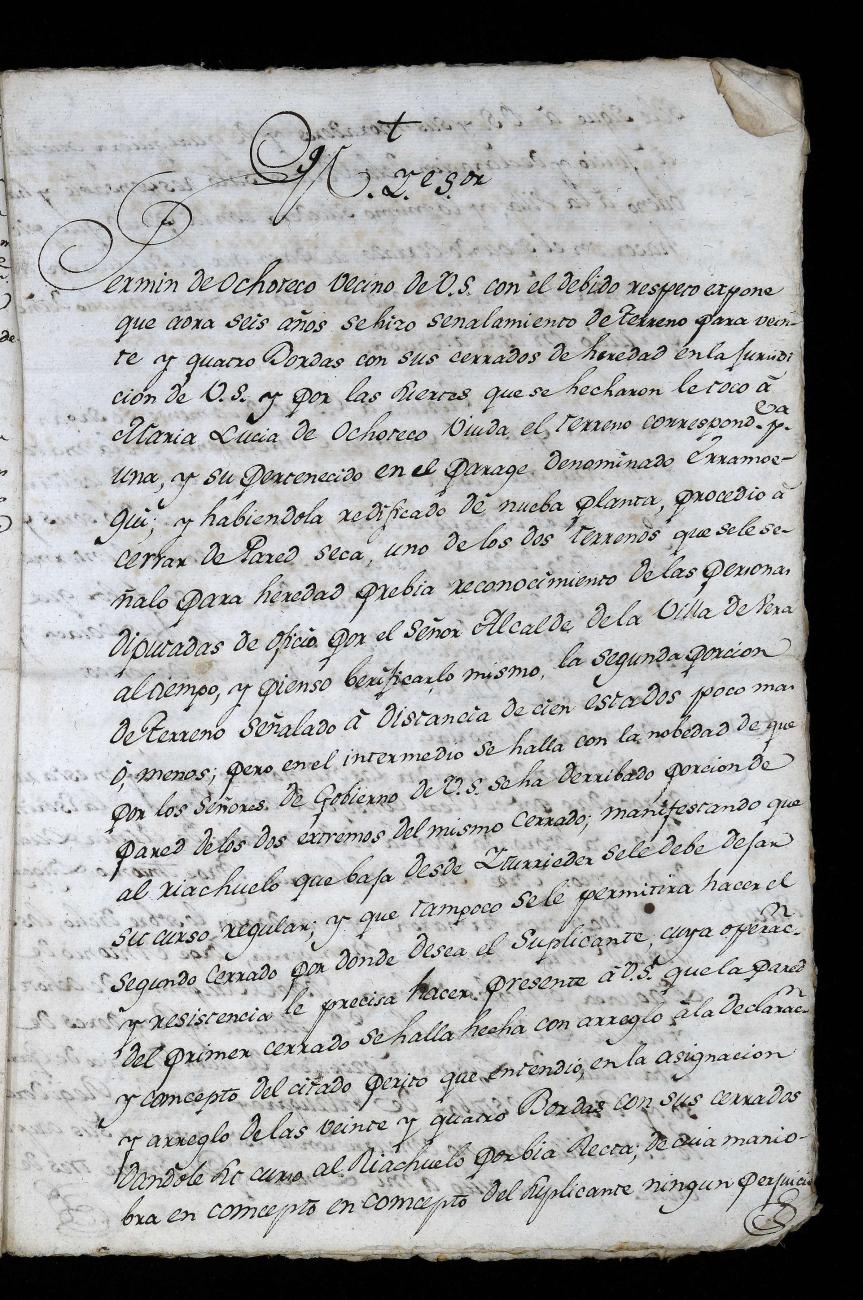 †
M. Y.e S.or
Fermin de Ochoteco Vecino de V.S. con el debido respeto expone
que aora seis años se hizo señalamiento de terreno para vein-
te y quatro Bordas con sus cerrados de heredad en la Jurisdi
cion de V.S. y por las suertes que se hecharon le toco â
Maria Lucia de Ochoteco Viuda el terreno correspond.te p.a
una, y su pertenecido en el parage denominado Erramoe-
gui; y habiendola redificado de nueba planta, procedio â
cerrar de Pared seca, uno de los dos terrenos que se le se-
ñalo para heredad prebia reconocimiento de las personas
diputadas de oficio por el Señor Alcalde de la Villa de Vera
al tiempo, y pienso berificarlo mismo, la segunda porcion
de terreno señalado â distancia de cien estados poco mas
ô, menos; pero en el intermedio se halla con la nobedad de que
por los Señores de Gobierno de V.S. se ha derribado porcion de
pared de los dos extremos del mismo cerrado; manifestando que
al riachuelo que baja desde Yturrieder se le debe dejar
su curso regular; y que tampoco se le permitira hacer el
segundo cerrado por donde desea el Suplicante, cuya operac.n
y resistencia le precisa hacer presente â V.S. que la pared
del primer cerrado se halla hecha con arreglo â la declarac.n
y concepto del citado perito que entendio, en la asignacion
y arreglo de las veinte y quatro Bordas con sus cerrados
dandole su curso al Riachuelo por bia Recta; de cuia manio-
bra en comcepto en comcepto del suplicante ningun perjuicio